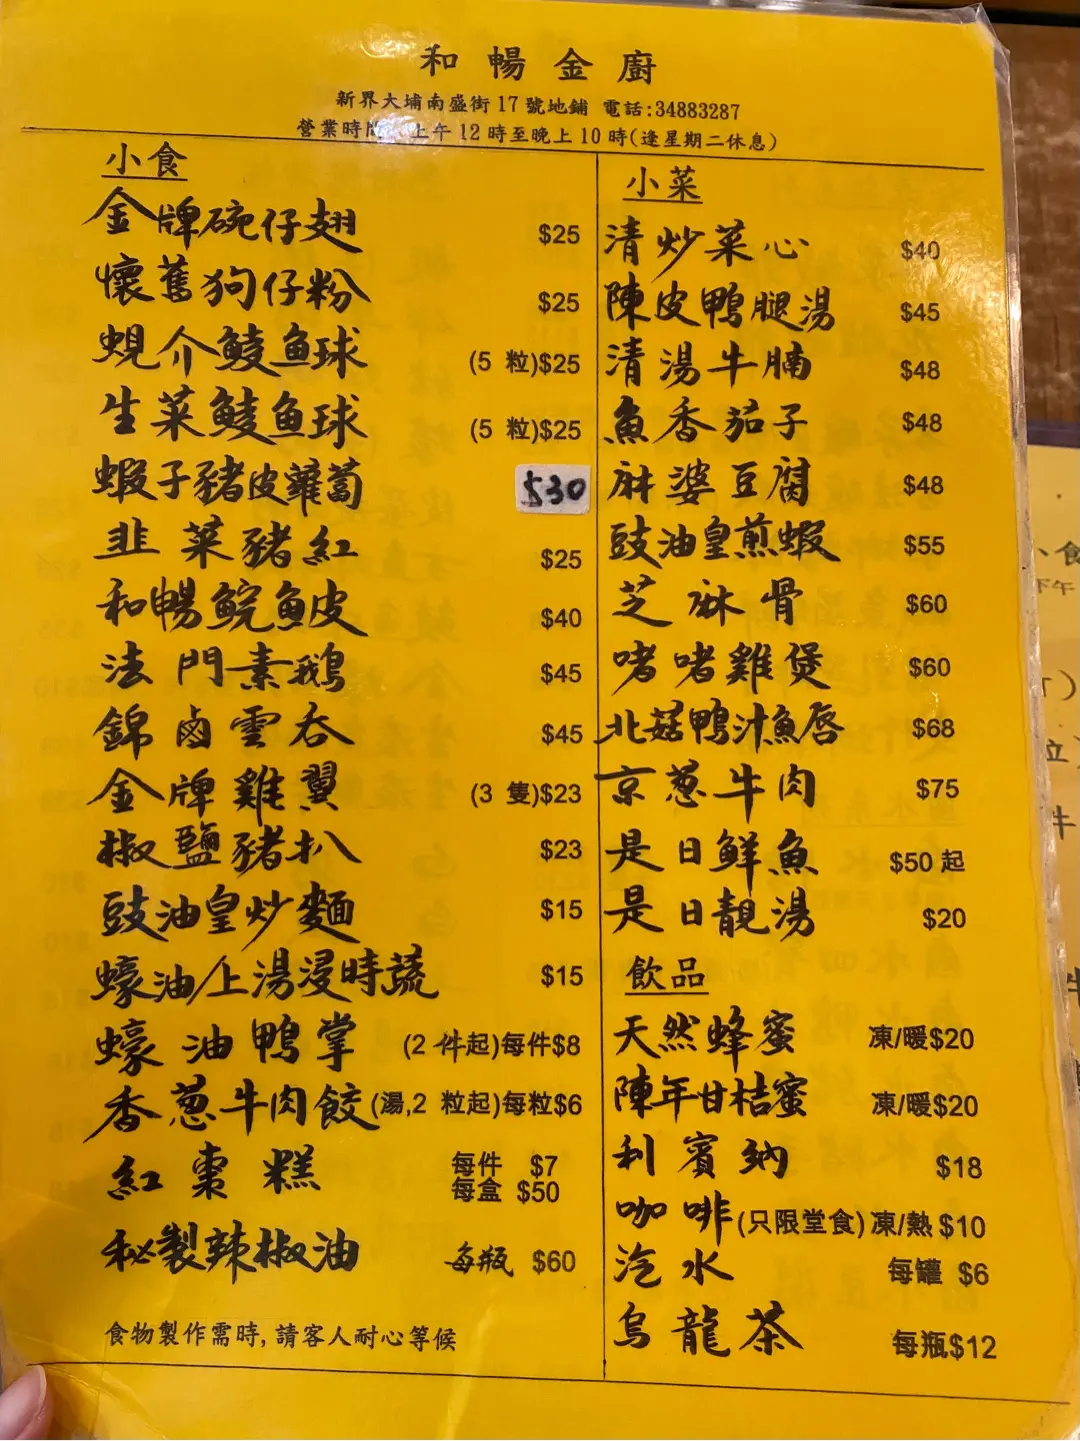 和暢金廚
新界大埔南盛街17號地鋪 電話:34883287
營業時間 上午12時至晚上10時(逢星期二休息)
小食
金牌碗仔翅 $25
懷舊狗仔粉 $25
蜆介鯪魚球 (5 粒)$25
生菜鯪魚球 (5 粒)$25
蝦子豬皮蘿蔔 $30
韭菜豬紅 $25
和暢鯇魚皮 $40
法門素鵝 $45
錦鹵雲吞 $45
金牌雞翼 (3 隻)$23
椒鹽豬扒 $23
豉油皇炒麵 $15
蠔油/上湯浸時蔬 $15
蠔油鴨掌 (2 件起)每件$8
香蔥牛肉餃(湯,2 粒起)每粒$6
紅棗糕 每件 $7
每盒 $50
秘製辣椒油 每瓶 $60
食物製作需時,請客人耐心等候
小菜
清炒菜心 $40
陳皮鴨腿湯 $45
清湯牛腩 $48
魚香茄子 $48
麻婆豆腐 $48
豉油皇煎蝦 $55
芝麻骨 $60
啫啫雞煲 $60
北菇鴨汁魚唇 $68
京蔥牛肉 $75
是日鮮魚 $50起
是日靚湯 $20
飲品
天然蜂蜜 凍/暖$20
陳年甘桔蜜 凍/暖$20
利賓納 $18
咖啡(只限堂食)凍/熱 $10
汽水 每罐 $6
烏龍茶 每瓶$12
小食
下午